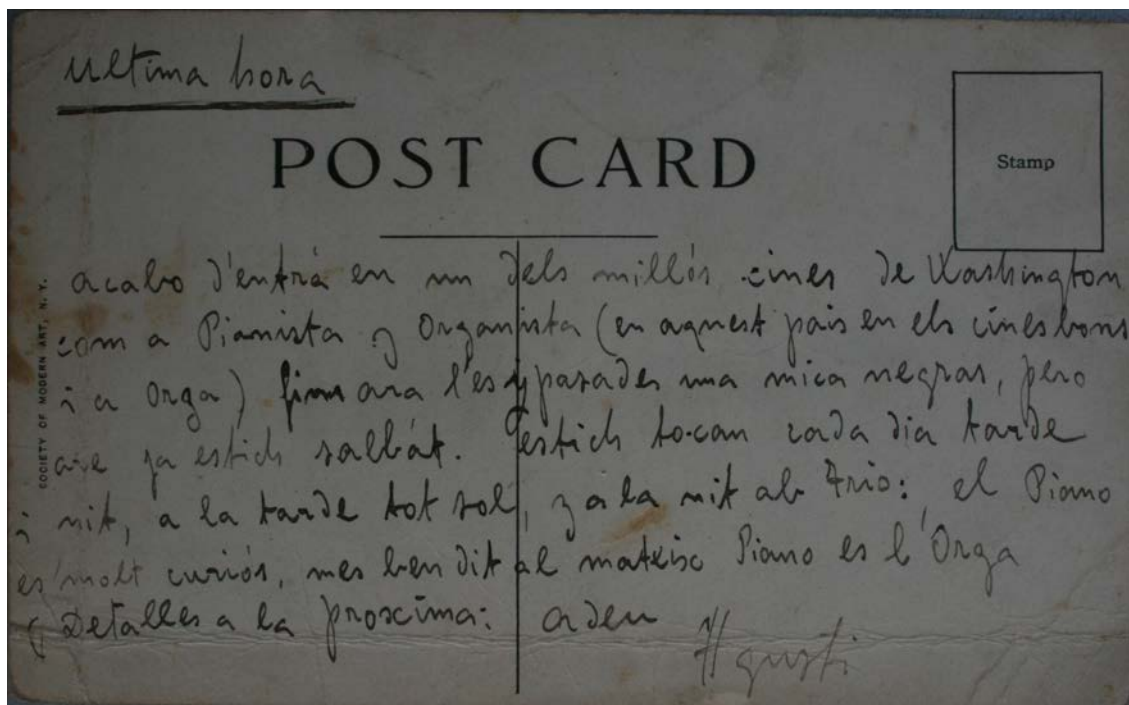 ultima hora
POST CARD
Stamp
acabo d'entrá en un dels millós cines de Washington
com a Pianista y Organista (en aquest pais en els cines bons
i a Orga) fins ara l'es passades una mica negras, pero
are ja estich salbát. estich tocan cada dia tarde
i nit, a la tarde tot sol, y a la nit ab Trio: el Piano
es molt curiós, mes ben dit al mateisc Piano es l'Orga
Detalles a la proxima: adeu
Agustí
SOCIETY OF MODERN ART, N. Y.